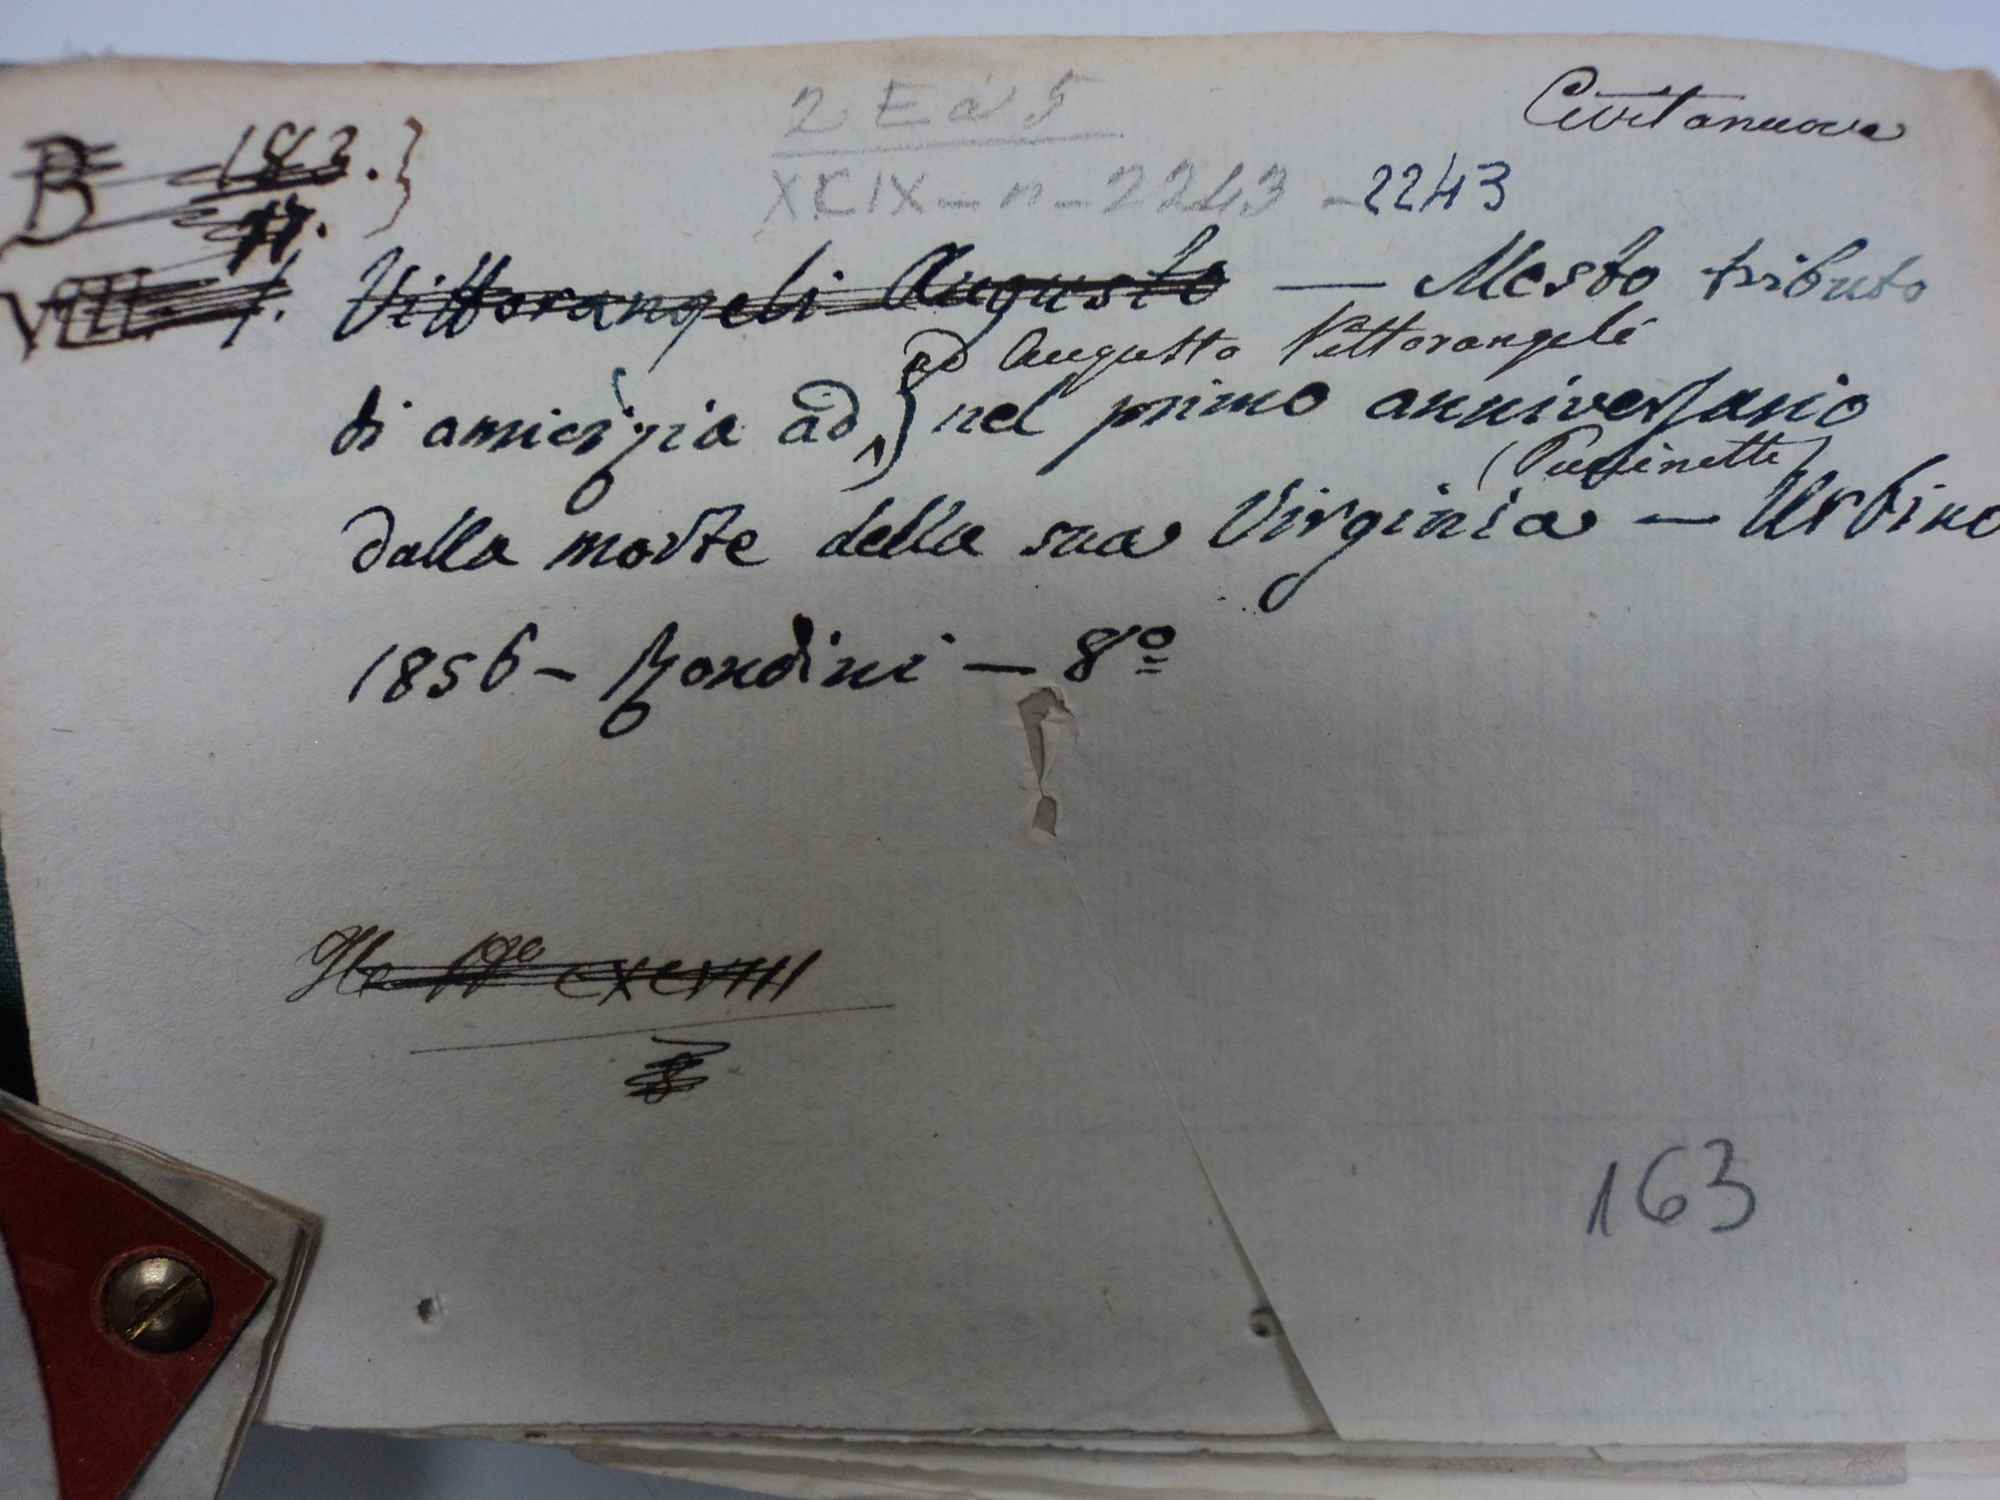 Civitanuova
2 E a 5
XCIX - n - 2243 - 2243
B 183. }
VIII. f. Vittorangeli Augusto — Mesto tributo
ad Augusto Vittorangeli
di amicizia ad } nel primo anniversario
dalla morte della sua Virginia — Urbino
1856 - Rondini - 8º
CXCVIII
163